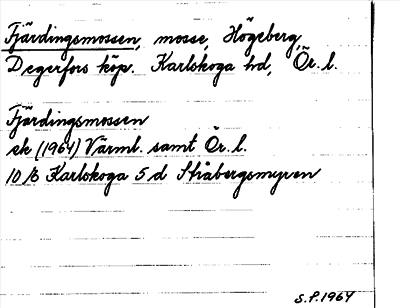 Fjärdingsmossen, mosse, Högeberg,
Degerfors köp. Karlskoga hd, Ör. l.
Fjärdingsmossen
ek (1964) Värml. samt Ör. l.
10/6 Karlskoga 5 d Stråbergsmyren
S.F. 1964